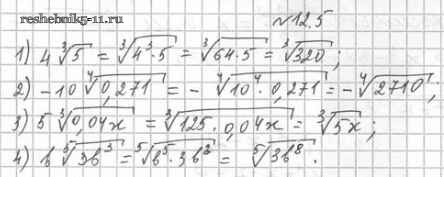 reshebnik5-11.ru
№12.5
1) 4∛5 = ∛(4³·5) = ∛(64·5) = ∛320;
2) -10∜0,271 = -∜(10⁴·0,271) = -∜2710;
3) 5∛(0,04x) = ∛(125·0,04x) = ∛(5x);
4) b⁵√(3b³) = ⁵√(b⁵·3b³) = ⁵√(3b⁸).